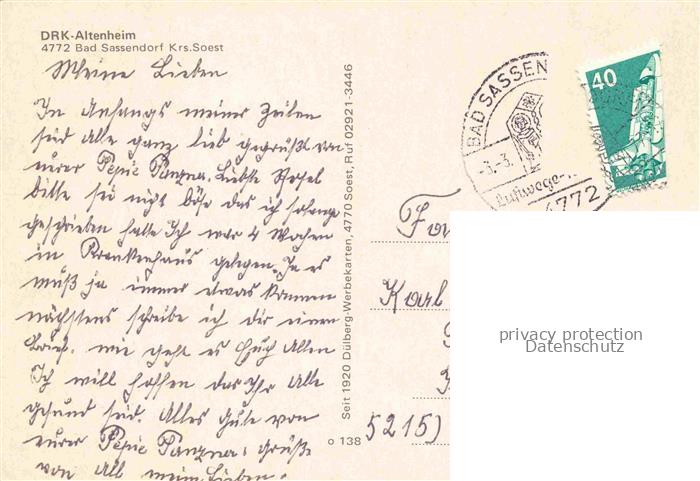 DRK-Altenheim
4772 Bad Sassendorf Krs.Soest
Meine Lieben
In Anfangs meiner Zeilen
seid alle ganz lieb gegrüßt von
eurer Pepie Panzna. Liebste Rosel
bitte sei nigt böse das ich solange
geschrieben habe Ich war 4 Wochen
in Krankenhaus gelegen. Ja es
muß ja immer etwas kommen
nächstens schreibe ich dir einen
Brief. wie geht es Euch Allen
Ich will hoffen das Ihr alle
gesund seid. Alles Gute von
eurer Pepie Panzna: Grüße
von all mein Lieben.
Seit 1920 Dülberg-Werbekarten, 4770 Soest, Ruf 02921-3446
o 138
BAD SASSEN
-3.-3.
4772
40
Karl
5215)
privacy protection
Datenschutz